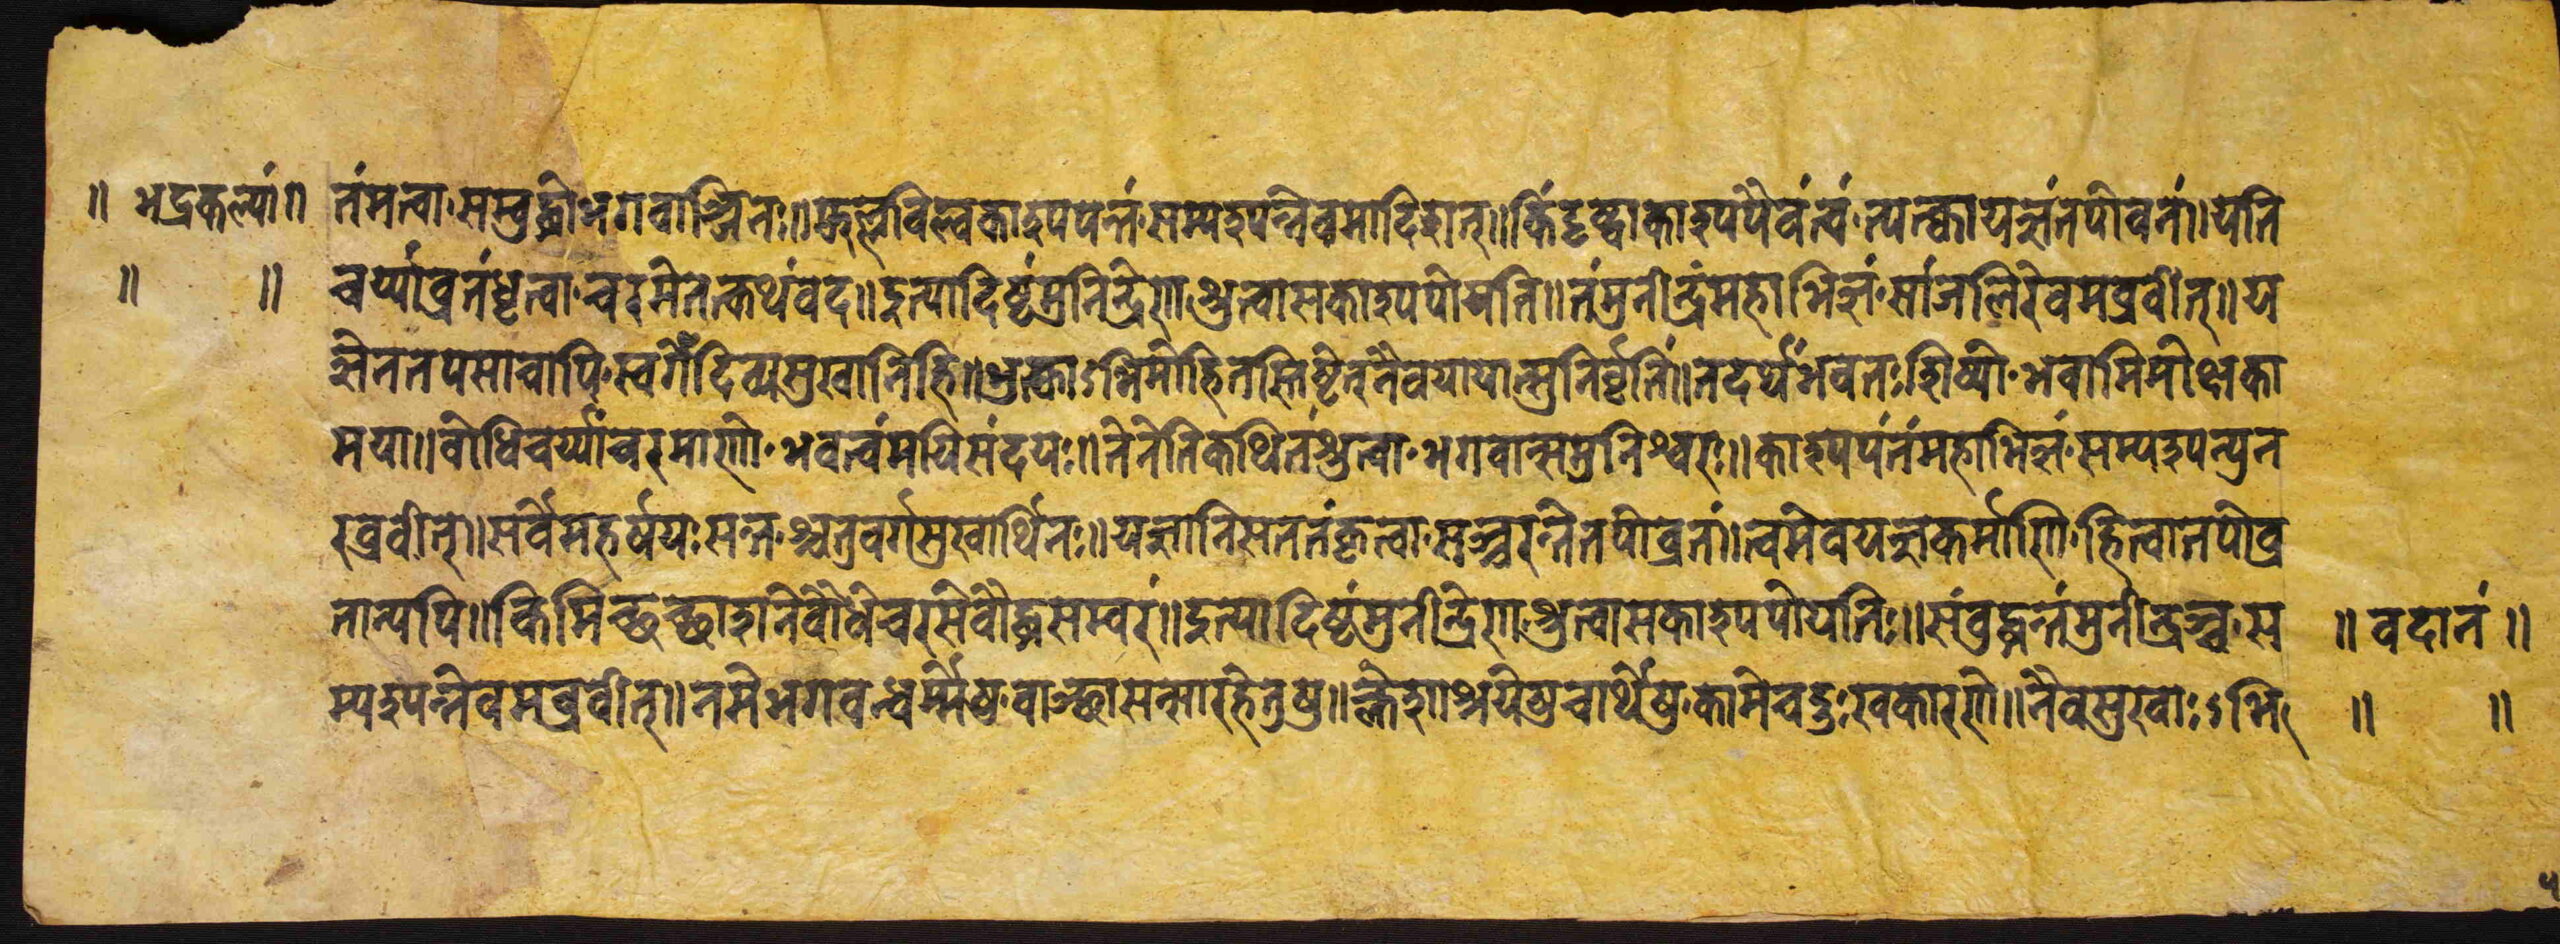 ॥ भद्रकल्पां॥ तंमत्वा सम्बुद्धोभगवाञ्जिनः॥ऊरुविल्वकाश्यपेन्तं सम्पश्यन्नेवमादिशत्॥किंदृष्ट्वाकाश्यपैवंत्वं त्यक्त्वायज्ञंतपोवनं॥यति
॥ ॥ चर्य्यांव्रतंधृत्वा चरसेतत्कथंवद॥इत्यादिष्टंमुनिन्द्रेण श्रुत्वासकाश्यपोयति॥तंमुनीन्द्रंमहाभिज्ञं सांजलिरेवमब्रवीत्॥य
ज्ञेनतपसाचापि स्वर्गेदिव्यसुखानिहि॥भुक्त्वाऽभिमोहितस्तिष्ठेत्नैवयायात्सुनिर्वृतिं॥तदर्थेभवतःशिष्यो भवामिमोक्षका
मया॥बोधिचर्य्यांचरमाणो भवत्वंमयिसंदयः॥तेनेतिकथितंश्रुत्वा भगवान्समुनिश्वरः॥काश्यपंतंमहाभिज्ञं सम्पश्यन्पुन
रब्रवीत्॥सर्वेमहर्षयःसन्त श्चतुवर्गसुखार्थिनः॥यज्ञानिसततंकृत्वा सञ्चरन्तेतपोव्रतं॥त्वमेवयज्ञकर्माणि हित्वातपोव्र
तान्यपि॥किमिच्छञ्छाशनेबौधेचरसेबौद्धसम्वरं॥इत्यादिष्टंमुनीन्द्रेण श्रुत्वासकाश्यपोयतिः॥संबुद्धन्तंमुनीन्द्रञ्च स ॥ वदानं ॥
म्पश्यन्नेवमब्रवीत्॥नमेभगवन्धर्मेषु वाञ्छासन्सारहेतुषु॥क्लेशाश्रयेषुचार्थेषु कामेचदुःखकारणे॥नैवसुखाःऽभि ॥ ॥